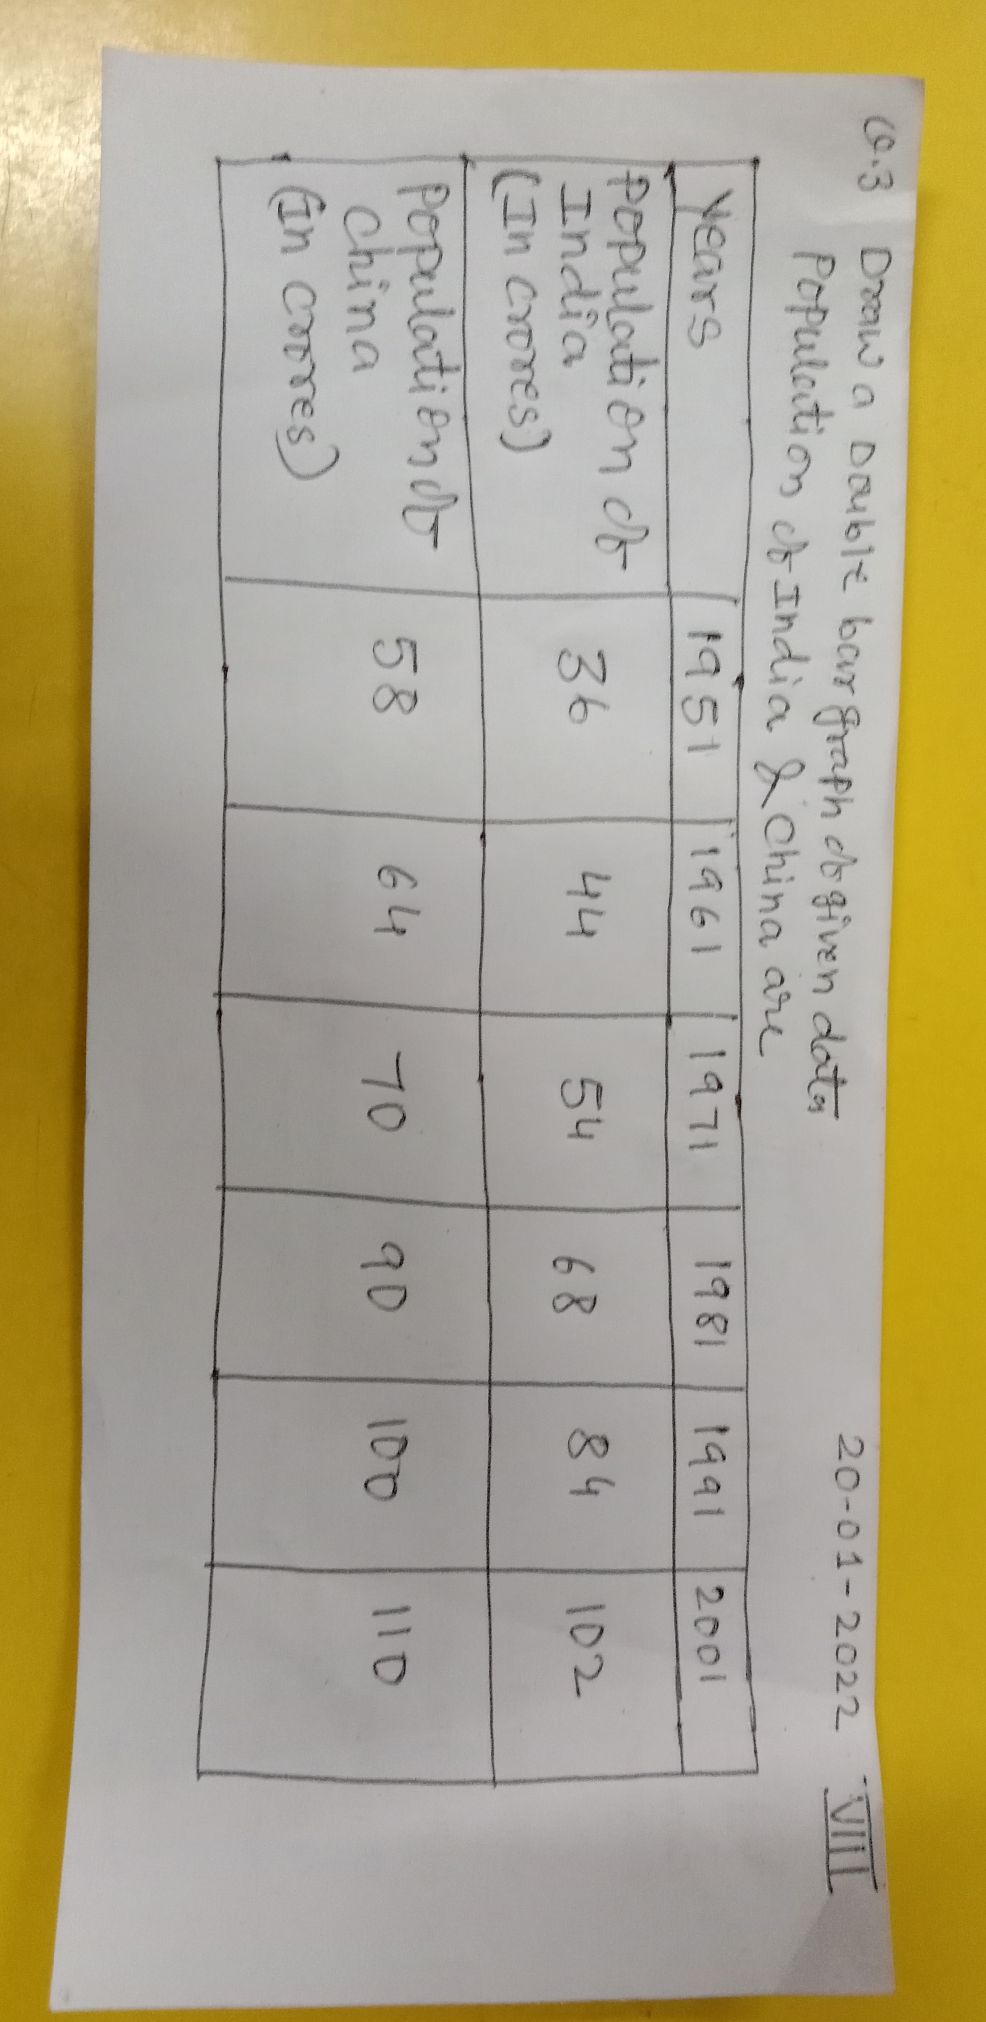 Q.3 Draw a Double bar graph of given data
20-01-2022 VIII
Population of India & China are
Years 1951 1961 1971 1981 1991 2001
Population of
India
(In crores) 36 44 54 68 84 102
Population of
China
(In crores) 58 64 70 90 100 110